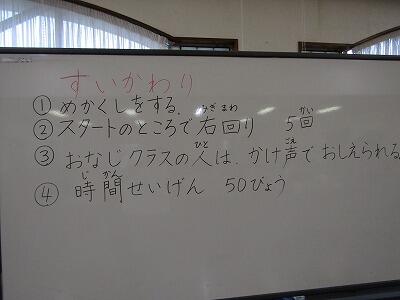 すいかわり
①めかくしをする.
②スタートのところで右回り 5回
③おなじクラスの人は、かけ声でおしえられる
④時間せいげん 50びょう